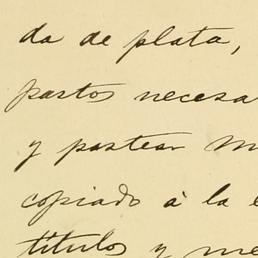 da de plata,
pastos necesa
y pastear m
copiado à la e
titulos y me